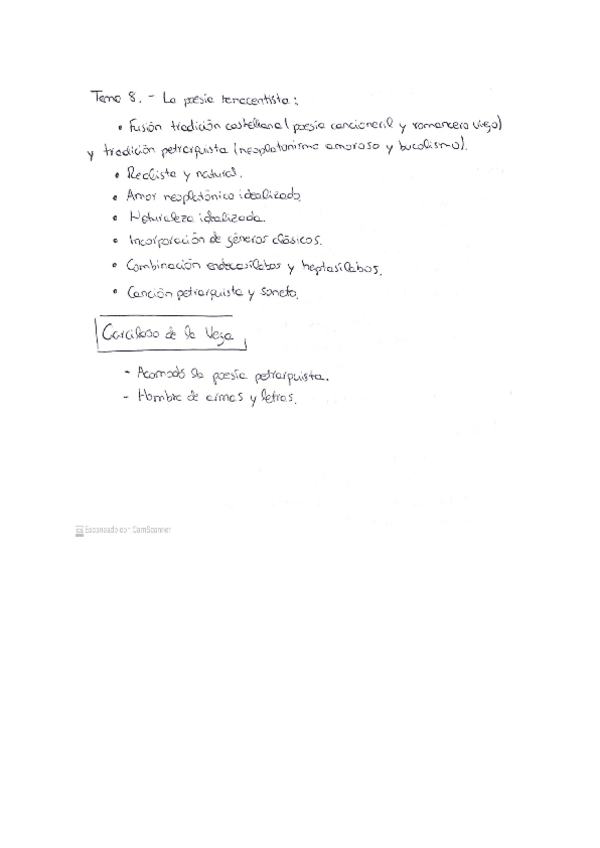 Tema 8. - La poesía renacentista:
• Fusión tradición castellana (poesía cancioneril y romancero viejo)
y tradición petrarquista (neoplatonismo amoroso y bucolismo).
• Realista y natural.
• Amor neoplatónico idealizado.
• Naturaleza idealizada.
• Incorporación de géneros clásicos.
• Combinación endecasílabos y heptasílabos.
• Canción petrarquista y soneto.
Garcilaso de la Vega
- Acomodó la poesía petrarquista.
- Hombre de armas y letras.
Escaneado con CamScanner